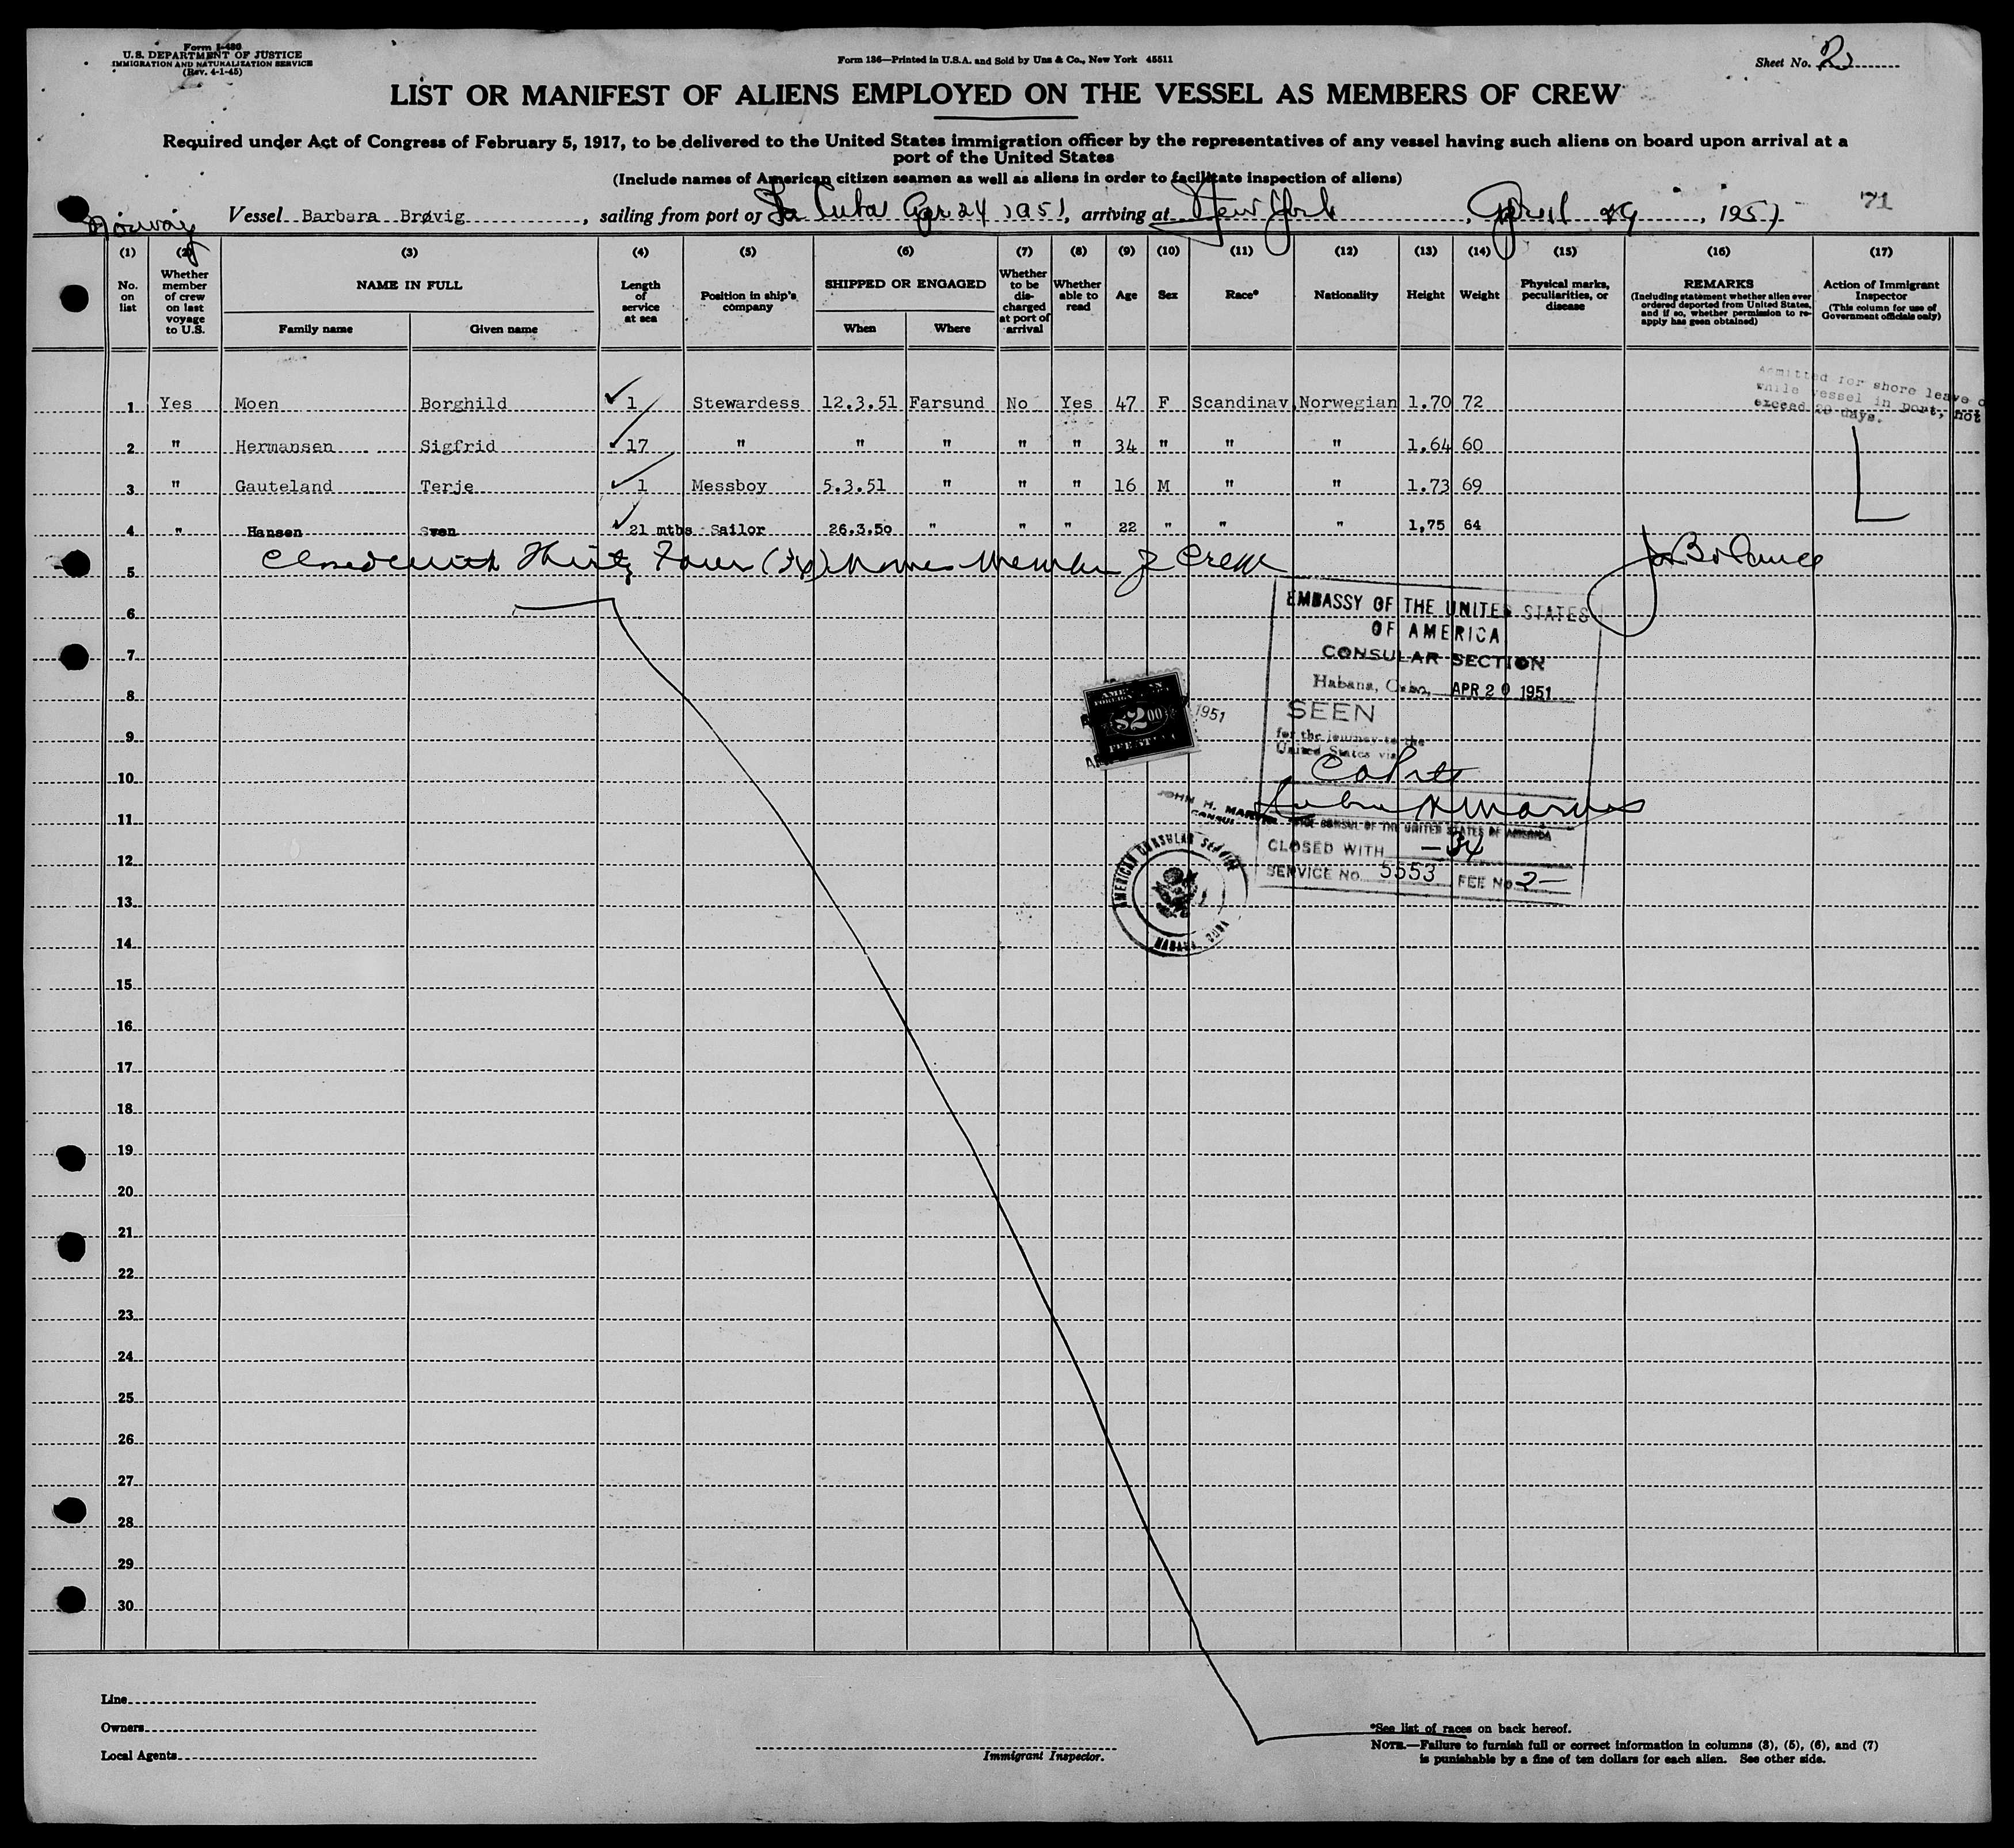 Form I-480
U.S. DEPARTMENT OF JUSTICE
IMMIGRATION AND NATURALIZATION SERVICE
(Rev. 4-1-45)
Form 136—Printed in U.S.A. and Sold by Unz & Co., New York 45511
Sheet No. 2
LIST OR MANIFEST OF ALIENS EMPLOYED ON THE VESSEL AS MEMBERS OF CREW
Required under Act of Congress of February 5, 1917, to be delivered to the United States immigration officer by the representatives of any vessel having such aliens on board upon arrival at a
port of the United States
(Include names of American citizen seamen as well as aliens in order to facilitate inspection of aliens)
Norway Vessel Barbara Brøvig, sailing from port of La Cuba Apr 24 1951, arriving at New York, April 29, 1951 71
(1) (2) (3) (4) (5) (6) (7) (8) (9) (10) (11) (12) (13) (14) (15) (16) (17)
No. on list
Whether member of crew on last voyage to U.S.
NAME IN FULL
Family name Given name
Length of service at sea
Position in ship's company
SHIPPED OR ENGAGED
When Where
Whether to be discharged at port of arrival
Whether able to read
Age
Sex
Race*
Nationality
Height
Weight
Physical marks, peculiarities, or disease
REMARKS
(Including statement whether alien ever ordered deported from United States, and if so, whether permission to reapply has been obtained)
Action of Immigrant Inspector
(This column for use of Government officials only)
Admitted for shore leave
while vessel in port, not
exceed 29 days.
1 Yes Moen Borghild 1 Stewardess 12.3.51 Farsund No Yes 47 F Scandinav. Norwegian 1.70 72
2 " Hermansen Sigfrid 17 " " " " " 34 " " " 1.64 60
3 " Gauteland Terje 1 Messboy 5.3.51 " " " 16 M " " 1.73 69
4 " Hansen Sven 21 mths Sailor 26.3.50 " " " 22 " " " 1,75 64
5 Closed with Thirty Four (34) names Member of Crew
6
7
8
9
10
11
12
13
14
15
16
17
18
19
20
21
22
23
24
25
26
27
28
29
30
EMBASSY OF THE UNITED STATES
OF AMERICA
CONSULAR SECTION
Habana, Cuba, APR 20 1951
SEEN
for the journey to the
United States via
JOHN H. MARVIN
CONSUL
VICE CONSUL OF THE UNITED STATES OF AMERICA
CLOSED WITH —34
SERVICE No. 5553 FEE No 2—
AMERICAN
$2.00
FEE STAMP
1951
AMERICAN CONSULAR SERVICE
HABANA, CUBA
Line
Owners
Local Agents
Immigrant Inspector.
*See list of races on back hereof.
NOTE.—Failure to furnish full or correct information in columns (3), (5), (6), and (7)
is punishable by a fine of ten dollars for each alien. See other side.